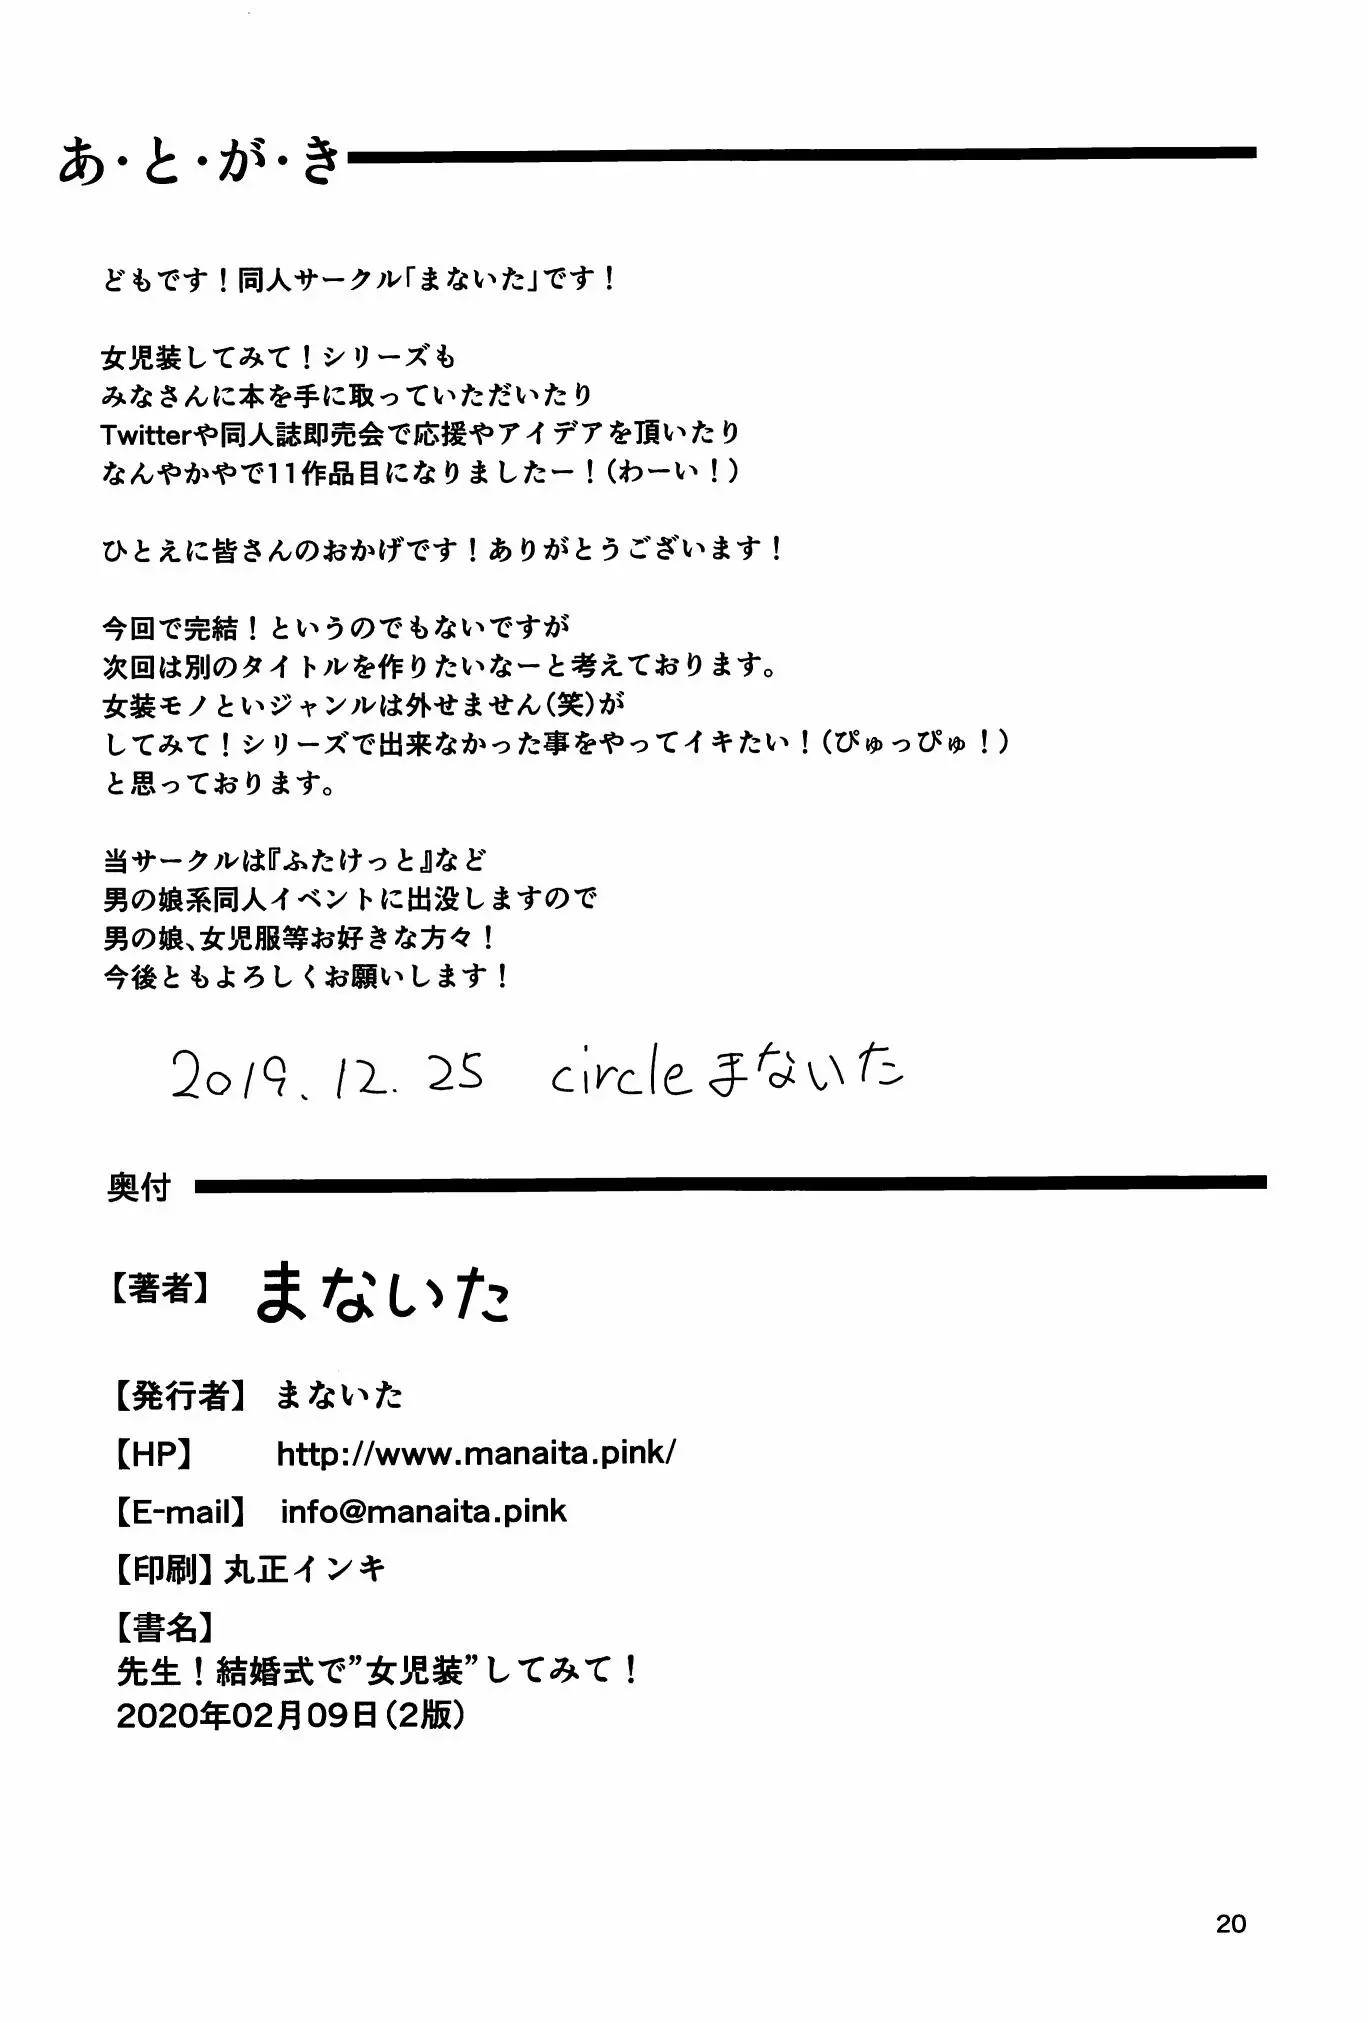 あ・と・が・き
どもです！同人サークル「まないた」です！
女児装してみて！シリーズも
みなさんに本を手に取っていただいたり
Twitterや同人誌即売会で応援やアイデアを頂いたり
なんやかやで11作品目になりましたー！（わーい！）
ひとえに皆さんのおかげです！ありがとうございます！
今回で完結！というのでもないですが
次回は別のタイトルを作りたいなーと考えております。
女装モノといジャンルは外せません（笑）が
してみて！シリーズで出来なかった事をやってイキたい！（ぴゅっぴゅ！）
と思っております。
当サークルは『ふたけっと』など
男の娘系同人イベントに出没しますので
男の娘、女児服等お好きな方々！
今後ともよろしくお願いします！
2019.12.25 circleまないた
奥付
【著者】 まないた
【発行者】 まないた
【HP】 http://www.manaita.pink/
【E-mail】 info@manaita.pink
【印刷】丸正インキ
【書名】
先生！結婚式で”女児装”してみて！
2020年02月09日（2版）
20